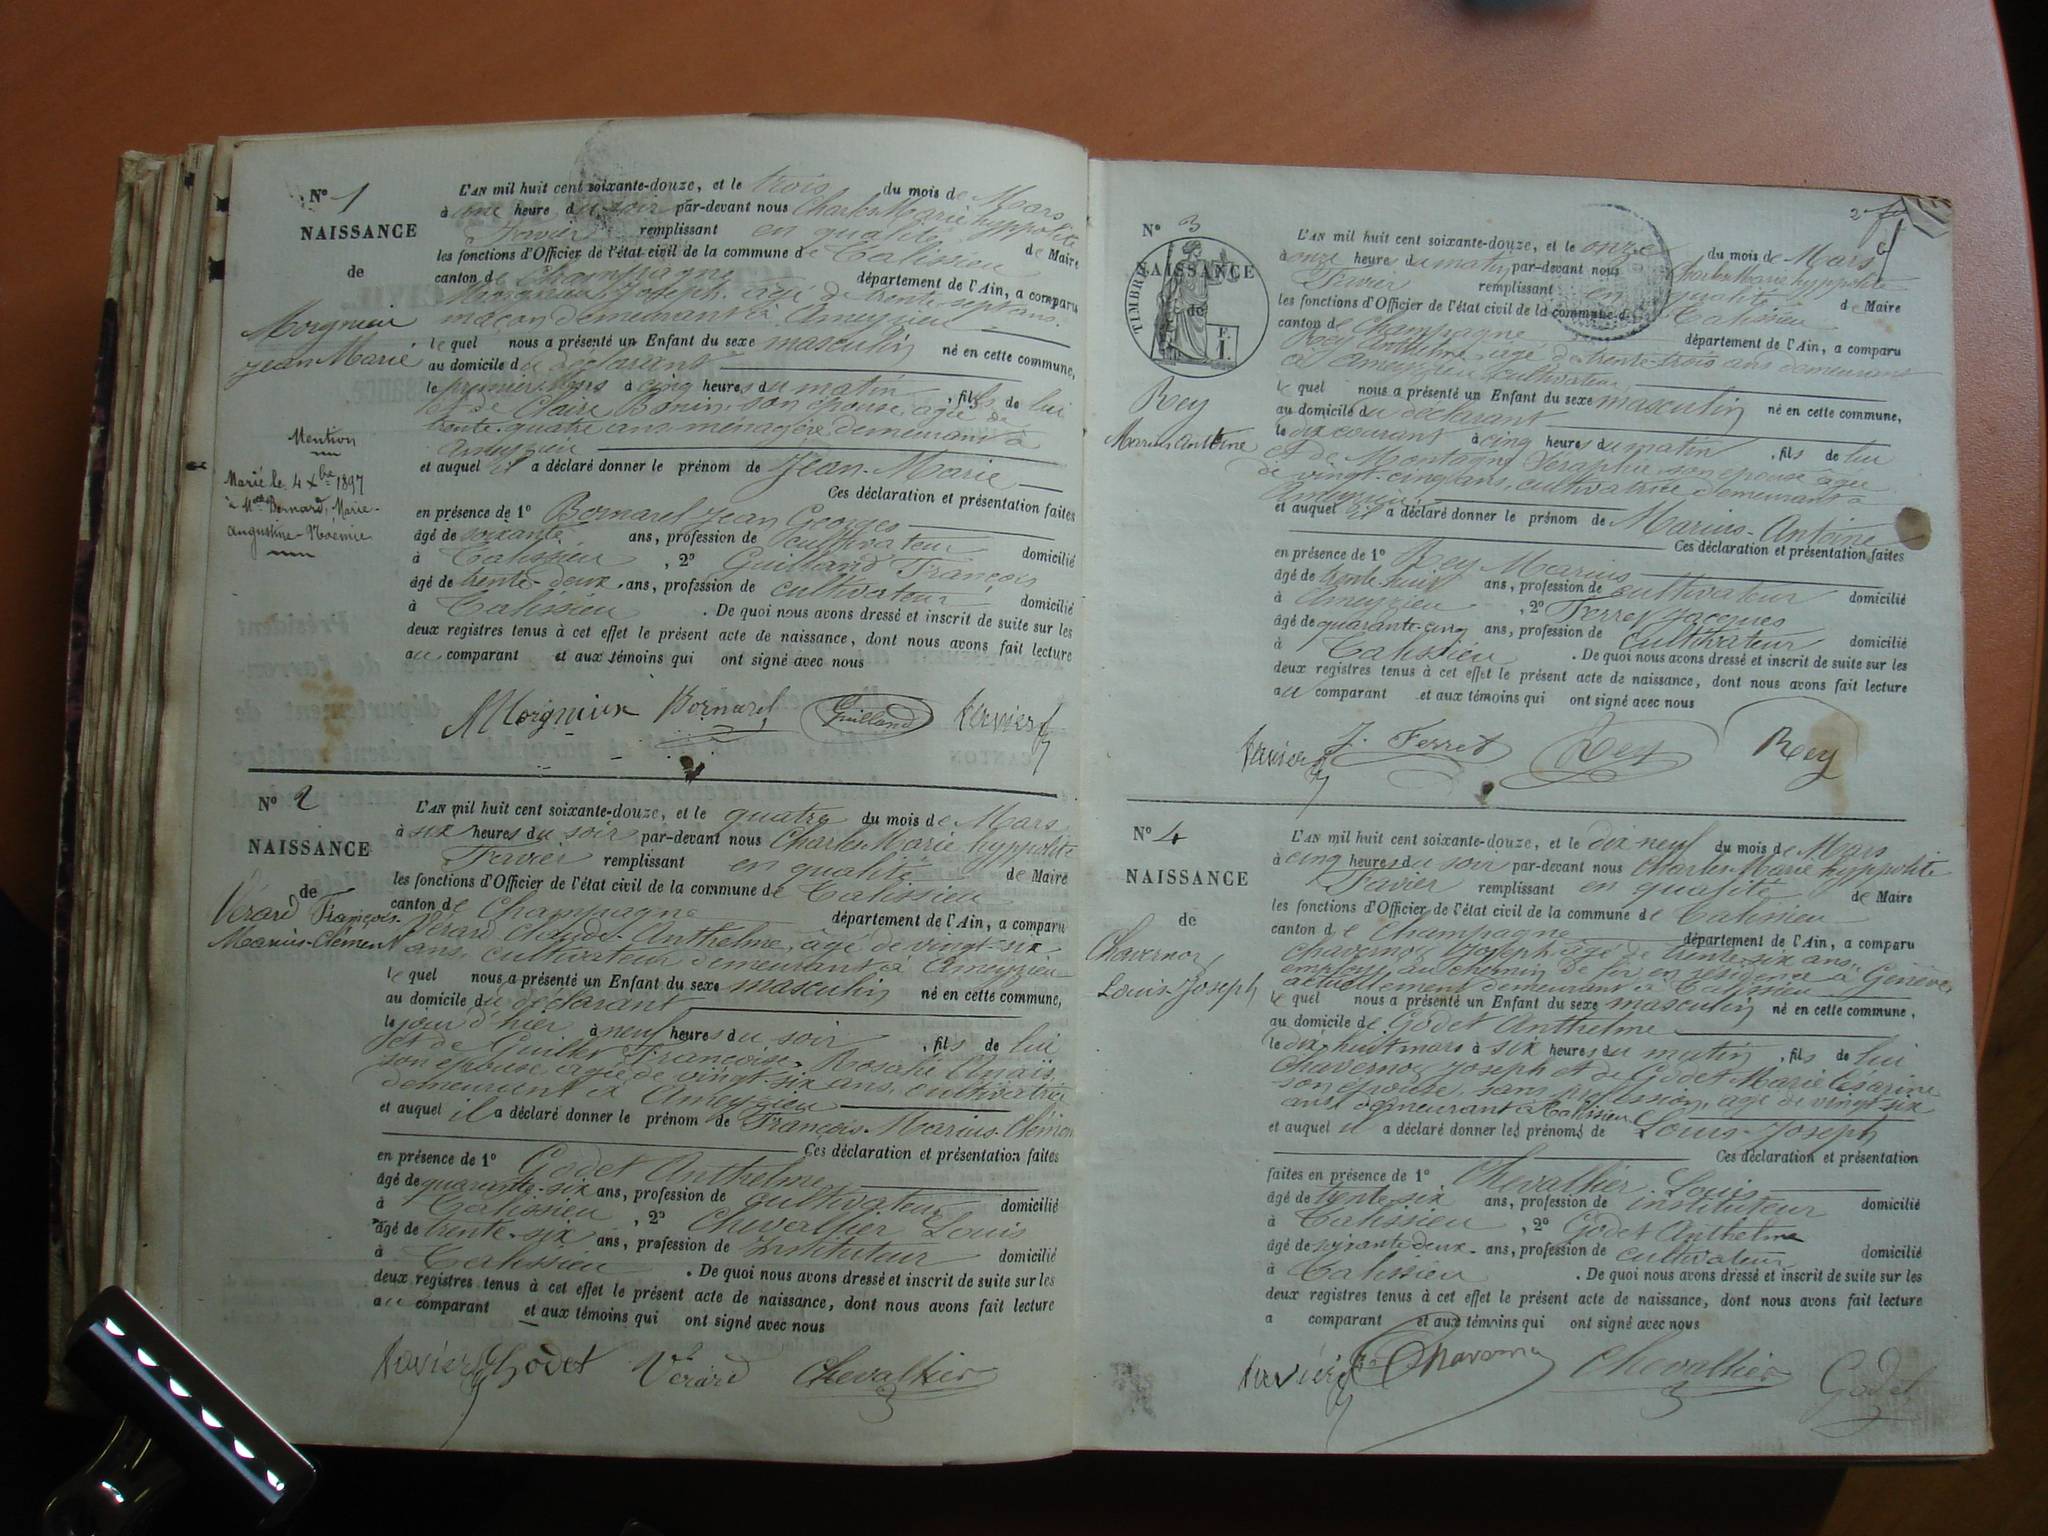 N° 1
NAISSANCE
de
Morgnieux
Jean Marie
Mention
Marié le 4 Xbre 1897
à Melle Bernard, Marie-
Augustine-Noémie
L'AN mil huit cent soixante-douze, et le trois du mois de Mars
à une heure du soir par-devant nous Charles Marie hyppolite
Favier remplissant en qualité de Maire
les fonctions d'Officier de l'état civil de la commune de Talissieu
canton de Champagne département de l'Ain, a comparu
Morgnieux Joseph, agé de trente-sept ans,
maçon demeurant à Ameyzieu
lequel nous a présenté un Enfant du sexe masculin né en cette commune,
au domicile du déclarant
le premier Mars à cinq heures du matin, fils de lui
et de Claire Bonin son épouse agée de
trente-quatre ans ménagère demeurant à
Ameyzieu
et auquel il a déclaré donner le prénom de Jean-Marie
Ces déclaration et présentation faites
en présence de 1° Bornarel Jean Georges
âgé de soixante ans, profession de cultivateur domicilié
à Talissieu, 2° Guilland François
âgé de trente-deux ans, profession de cultivateur domicilié
à Talissieu. De quoi nous avons dressé et inscrit de suite sur les
deux registres tenus à cet effet le présent acte de naissance, dont nous avons fait lecture
au comparant et aux témoins qui ont signé avec nous
Morgnieux Bornarel Guilland Favier
N° 2
NAISSANCE
de
Vérard François-
Marius-Clément
L'AN mil huit cent soixante-douze, et le quatre du mois de Mars
à six heures du soir par-devant nous Charles Marie hyppolite
Favier remplissant en qualité de Maire
les fonctions d'Officier de l'état civil de la commune de Talissieu
canton de Champagne département de l'Ain, a comparu
Vérard Claude-Anthelme, âgé de vingt-six
ans, cultivateur demeurant à Ameyzieu
lequel nous a présenté un Enfant du sexe masculin né en cette commune,
au domicile du déclarant
le jour d'hier à neuf heures du soir, fils de lui
et de Guillet Françoise-Rosalie Anaïs,
son épouse agée de vingt-six ans, cultivatrice
demeurant à Ameyzieu
et auquel il a déclaré donner le prénom de François-Marius-Clément
Ces déclaration et présentation faites
en présence de 1° Godet Anthelme
âgé de quarante-six ans, profession de cultivateur domicilié
à Talissieu, 2° Chevallier Louis
âgé de trente-six ans, profession de Instituteur domicilié
à Talissieu. De quoi nous avons dressé et inscrit de suite sur les
deux registres tenus à cet effet le présent acte de naissance, dont nous avons fait lecture
au comparant et aux témoins qui ont signé avec nous
Favier Godet Vérard Chevallier
2
N° 3
NAISSANCE
de
TIMBRE
Rey
Marius Antoine
L'AN mil huit cent soixante-douze, et le onze du mois de Mars
à onze heures du matin par-devant nous Charles Marie hyppolite
Favier remplissant en qualité de Maire
les fonctions d'Officier de l'état civil de la commune de Talissieu
canton de Champagne département de l'Ain, a comparu
Rey Anthelme agé de trente-trois ans demeurant
à Ameyzieu cultivateur
lequel nous a présenté un Enfant du sexe masculin né en cette commune,
au domicile du déclarant
le dix courant à cinq heures du matin, fils de lui
et de Montagne Séraphie son épouse âgée
de vingt-cinq ans, cultivatrice demeurant à
Ameyzieu
et auquel il a déclaré donner le prénom de Marius-Antoine
Ces déclaration et présentation faites
en présence de 1° Rey Marius
âgé de trente-huit ans, profession de cultivateur domicilié
à Ameyzieu, 2° Ferret Jacques
âgé de quarante-cinq ans, profession de cultivateur domicilié
à Talissieu. De quoi nous avons dressé et inscrit de suite sur les
deux registres tenus à cet effet le présent acte de naissance, dont nous avons fait lecture
au comparant et aux témoins qui ont signé avec nous
Favier J. Ferret Rey Rey
N° 4
NAISSANCE
de
Chavernoz
Louis-Joseph
L'AN mil huit cent soixante-douze, et le dix neuf du mois de Mars
à cinq heures du soir par-devant nous Charles Marie hyppolite
Favier remplissant en qualité de Maire
les fonctions d'Officier de l'état civil de la commune de Talissieu
canton de Champagne département de l'Ain, a comparu
Chavernoz Joseph agé de trente-six ans,
employé au chemin de fer en résidence à Genève
actuellement demeurant à Talissieu
lequel nous a présenté un Enfant du sexe masculin né en cette commune,
au domicile de Godet Anthelme
le dix-huit mars à six heures du matin, fils de lui
Chavernoz Joseph et de Godet Marie Césarine
son épouse, sans profession, agé de vingt-six
ans demeurant à Talissieu
et auquel il a déclaré donner les prénoms de Louis-Joseph
Ces déclaration et présentation
faites en présence de 1° Chevallier Louis
âgé de trente-six ans, profession de instituteur domicilié
à Talissieu, 2° Godet Anthelme
âgé de soixante deux ans, profession de cultivateur domicilié
à Talissieu. De quoi nous avons dressé et inscrit de suite sur les
deux registres tenus à cet effet le présent acte de naissance, dont nous avons fait lecture
a comparant et aux témoins qui ont signé avec nous
Favier Chavernoz Chevallier Godet